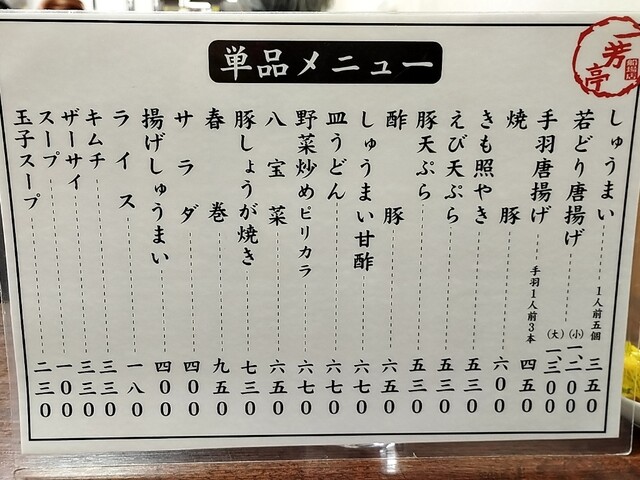 単品メニュー
一芳亭
船場店
しゅうまい 1人前五個 三五0
若どり唐揚げ (小) 一、二00
(大) 一、三00
手羽唐揚げ 手羽1人前3本 四五0
焼豚 六00
きも照やき 五三0
えび天ぷら 五三0
豚天ぷら 五三0
酢豚 六五0
しゅうまい甘酢 六七0
皿うどん 六七0
野菜炒めピリカラ 六七0
八宝菜 六五0
豚しょうが焼き 七三0
春巻 九五0
サラダ 四00
揚げしゅうまい 四00
ライス 一八0
キムチ 三三0
ザーサイ 三三0
スープ 一00
玉子スープ 二三0